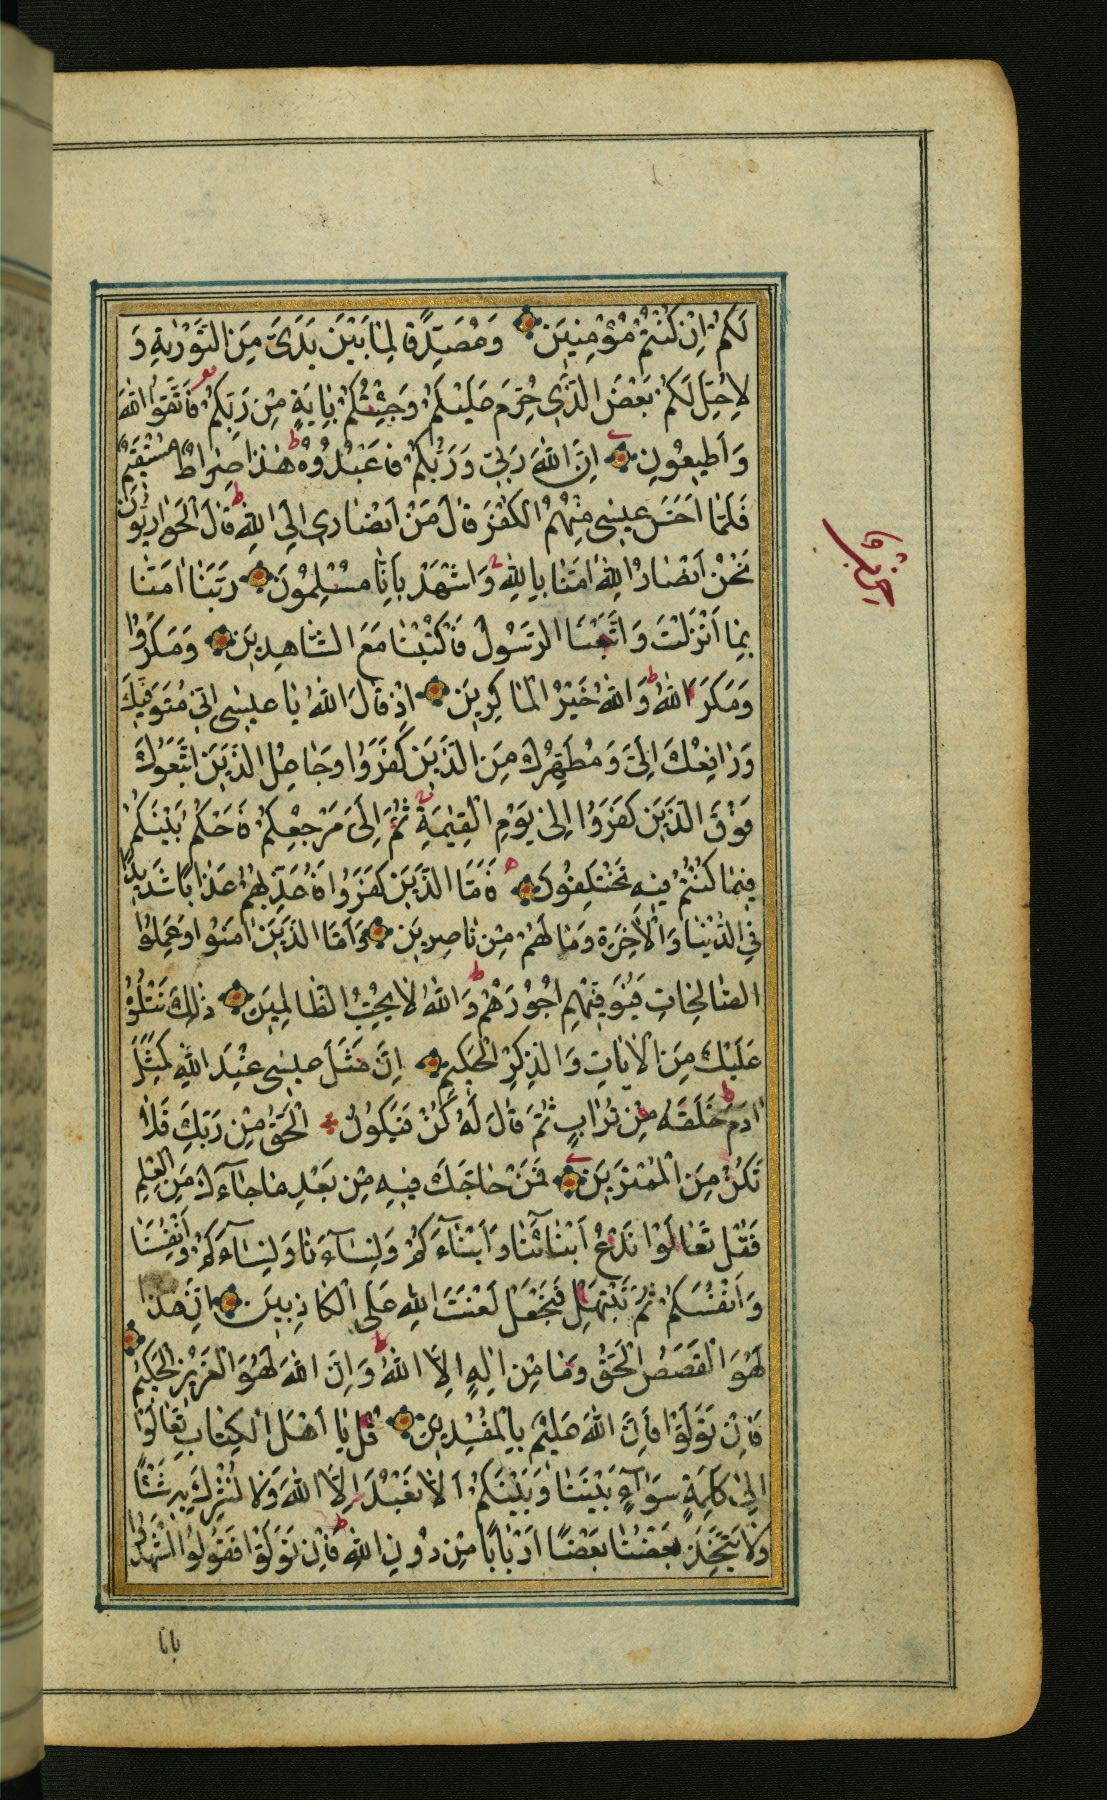 لَكُمْ اِنْ كُنْتُمْ مُؤْمِنِيَن وَمُصَدِّقًا لِمَا بَيْنَ يَدَيَّ مِنَ التَّوْرٰيةِ وَ
لِاُحِلَّ لَكُمْ بَعْضَ الَّذِي حُرِّمَ عَلَيْكُمْ وَجِئْتُكُمْ بِاٰيَةٍ مِنْ رَبِّكُمْ فَاتَّقُوا اللهَ
وَاَطيعُونِ اِنَّ اللهَ رَبّي وَرَبُّكُمْ فَاعْبُدُوهُ هٰذا صِراطٌ مُسْتَقيمٌ
فَلَمّا اَحَسَّ عيسٰى مِنْهُمُ الْكُفْرَ قالَ مَنْ اَنْصٰارى اِلَى اللهِ قالَ الْحَوارِيُّونَ
نَحْنُ اَنْصٰارُ اللهِ اٰمَنّا بِاللهِ وَاشْهَدْ بِاَنّا مُسْلِمُونَ رَبَّنا اٰمَنّا
بِما اَنْزَلْتَ وَاتَّبَعْنَا الرَّسُولَ فَاكْتُبْنا مَعَ الشّاهِدينَ وَمَكَرُوا
وَمَكَرَ اللهُ وَاللهُ خَيْرُ الْماكِرينَ اِذْ قالَ اللهُ يا عيسٰى اِنّي مُتَوَفّيكَ
وَرافِعُكَ اِلَيَّ وَمُطَهِّرُكَ مِنَ الَّذينَ كَفَرُوا وَجاعِلُ الَّذينَ اتَّبَعُوكَ
فَوْقَ الَّذينَ كَفَرُوا اِلٰى يَوْمِ الْقِيٰمَةِ ثُمَّ اِلَيَّ مَرْجِعُكُمْ فَاَحْكُمُ بَيْنَكُمْ
فيما كُنْتُمْ فيهِ تَخْتَلِفُونَ فَاَمَّا الَّذينَ كَفَرُوا فَاُعَذِّبُهُمْ عَذابًا شَديدًا
فِي الدُّنْيا وَالْاٰخِرَةِ وَما لَهُمْ مِنْ ناصِرينَ وَاَمَّا الَّذينَ اٰمَنُوا وَعَمِلُوا
الصّالِحاتِ فَيُوَفّيهِمْ اُجُورَهُمْ وَاللهُ لا يُحِبُّ الظّالِمينَ ذٰلِكَ نَتْلُوهُ
عَلَيْكَ مِنَ الْاٰياتِ وَالذِّكْرِ الْحَكيمِ اِنَّ مَثَلَ عيسٰى عِنْدَ اللهِ كَمَثَلِ
اٰدَمَ خَلَقَهُ مِنْ تُرابٍ ثُمَّ قالَ لَهُ كُنْ فَيَكُونُ الْحَقُّ مِنْ رَبِّكَ فَلا
تَكُنْ مِنَ الْمُمْتَرينَ فَمَنْ حاجَّكَ فيهِ مِنْ بَعْدِ ما جاءَكَ مِنَ الْعِلْمِ
فَقُلْ تَعالَوْا نَدْعُ اَبْنائَنا وَاَبْناءَكُمْ وَنِساءَنا وَنِساءَكُمْ وَاَنْفُسَنا
وَاَنْفُسَكُمْ ثُمَّ نَبْتَهِلْ فَنَجْعَلْ لَعْنَتَ اللهِ عَلَى الْكاذِبينَ اِنَّ هٰذا
لَهُوَ الْقَصَصُ الْحَقُّ وَما مِنْ اِلٰهٍ اِلَّا اللهُ وَاِنَّ اللهَ لَهُوَ الْعَزيزُ الْحَكيمُ
فَاِنْ تَوَلَّوْا فَاِنَّ اللهَ عَليمٌ بِالْمُفْسِدينَ قُلْ يا اَهْلَ الْكِتابِ تَعالَوْا
اِلٰى كَلِمَةٍ سَواءٍ بَيْنَنا وَبَيْنَكُمْ اَلّا نَعْبُدَ اِلَّا اللهَ وَلا نُشْرِكَ بِهِ شَيْئًا
وَلا يَتَّخِذَ بَعْضُنا بَعْضًا اَرْبابًا مِنْ دُونِ اللهِ فَاِنْ تَوَلَّوْا فَقُولُوا اشْهَدُوا
بانا